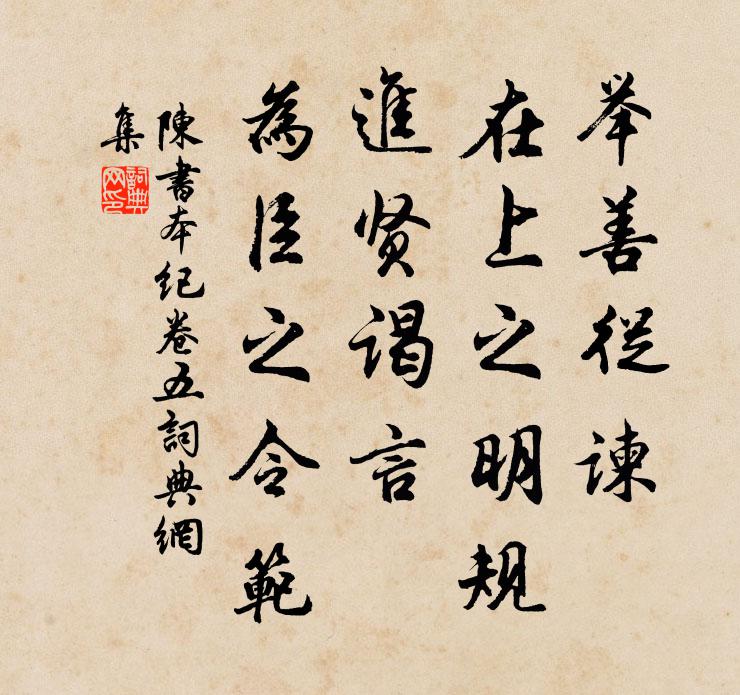 举善從谏
在上之明規
進贤謁言
為臣之令範
陳書本纪卷五詞典網
集
詞典
网印